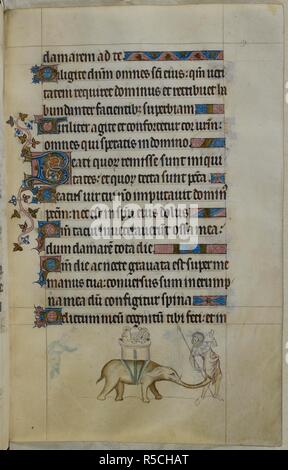 damarem ad te.
Diligite dnm omnes sci eius: qm veri
tatem requiret dominus et retribuet ha
bundanter facientib; superbiam
Viriliter agite et confortetur cor vrm:
omnes qui speratis in domino.
Beati quor remisse sunt iniqui
tates: et quor tecta sunt pcta.
Beatus vir cui non imputavit domin
pctm: nec est in spu eius dolus.
Qm tacui inveterauerunt ossa mea:
dum clamarem tota die.
Qm die ac nocte gravata est super me
manus tua: conversus sum in erump
na mea dum configitur spina.
Delictum meum cognitum tibi feci: et in
alamy
R5CHAT
www.alamy.com